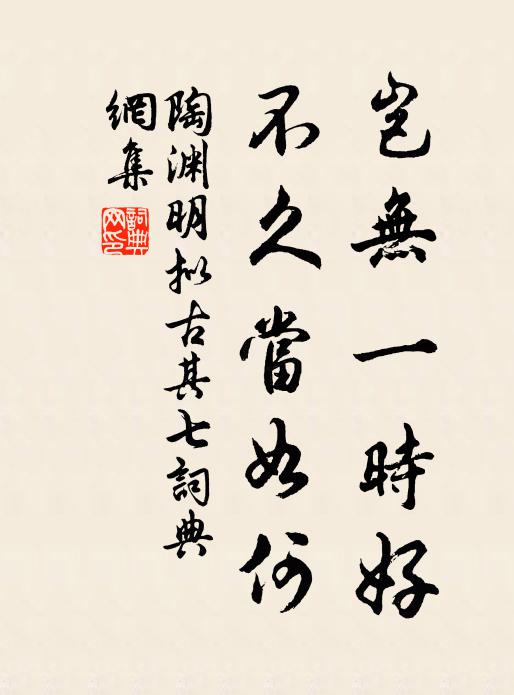 豈無一時好
不久當如何
陶渊明拟古其七詞典
網集
詞典
网印